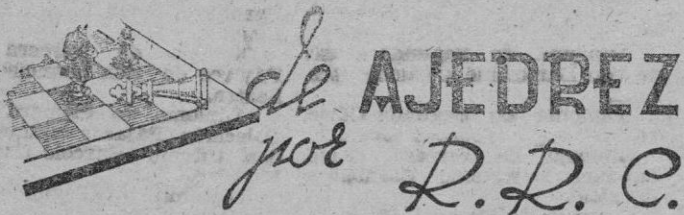 de AJEDREZ
por R. R. C.